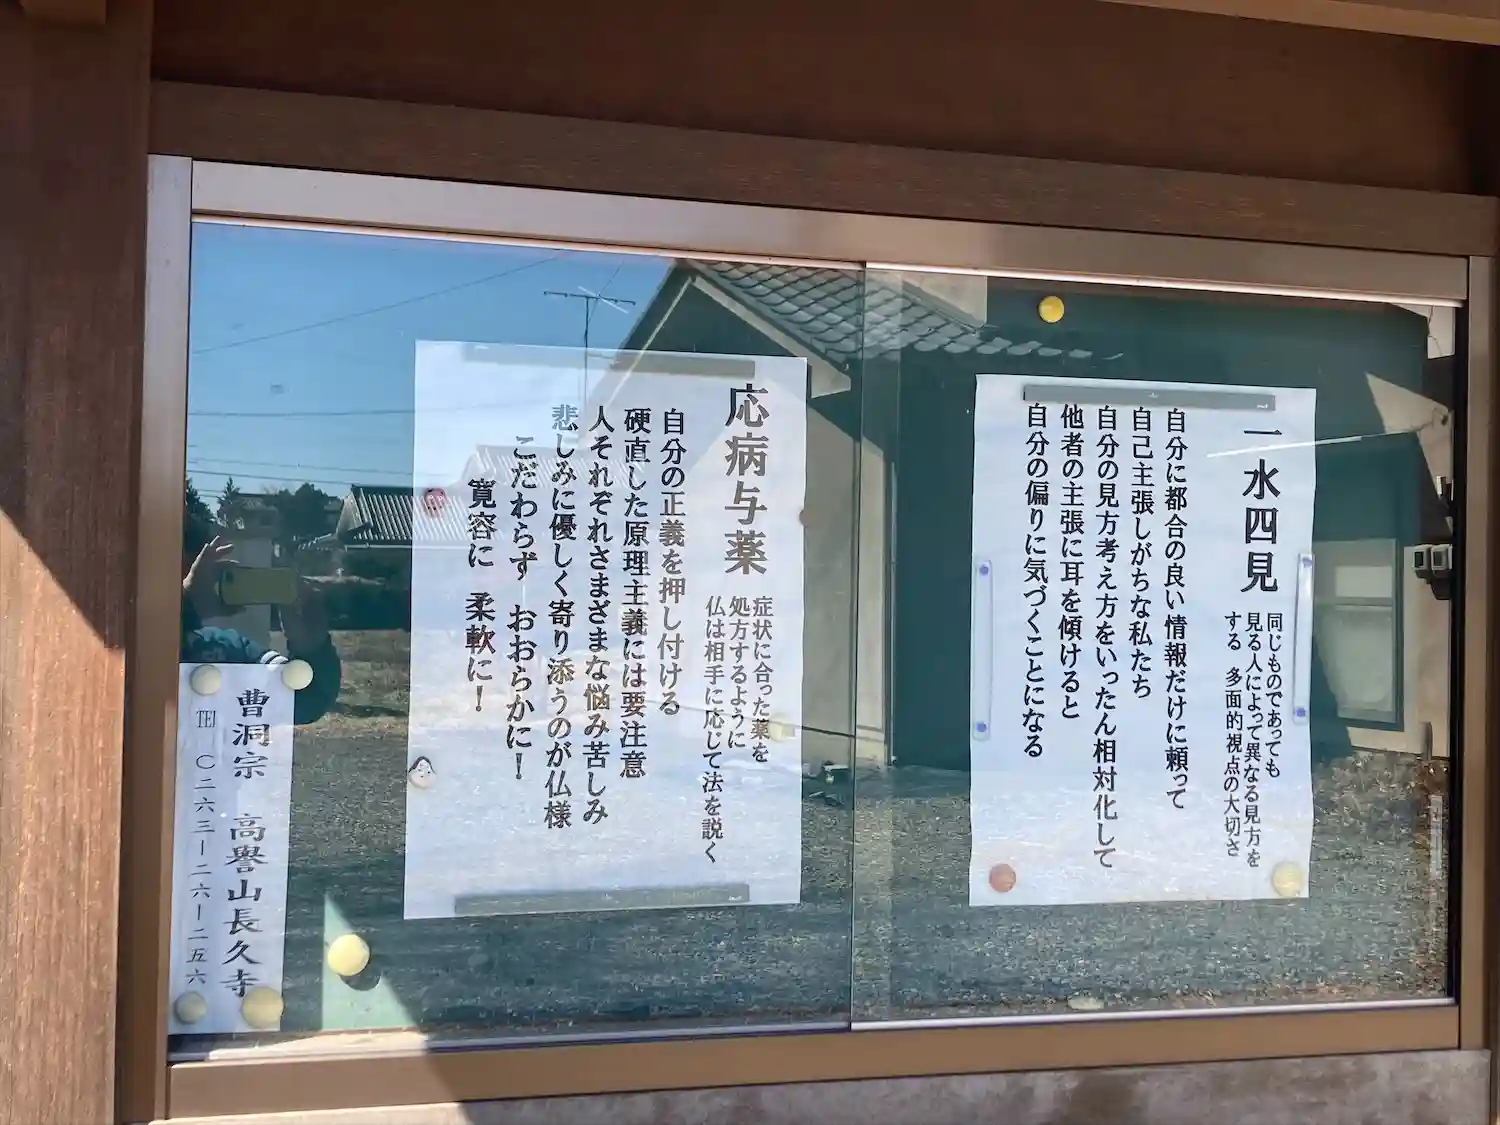 一水四見
同じものであっても
見る人によって異なる見方を
する 多面的視点の大切さ
自分に都合の良い情報だけに頼って
自己主張しがちな私たち
自分の見方考え方をいったん相対化して
他者の主張に耳を傾けると
自分の偏りに気づくことになる
応病与薬
症状に合った薬を
処方するように
仏は相手に応じて法を説く
自分の正義を押し付ける
硬直した原理主義には要注意
人それぞれさまざまな悩み苦しみ
悲しみに優しく寄り添うのが仏様
こだわらず おおらかに!
寛容に 柔軟に!
曹洞宗 高譽山長久寺
TEL 〇二六三ー二六ー二五六